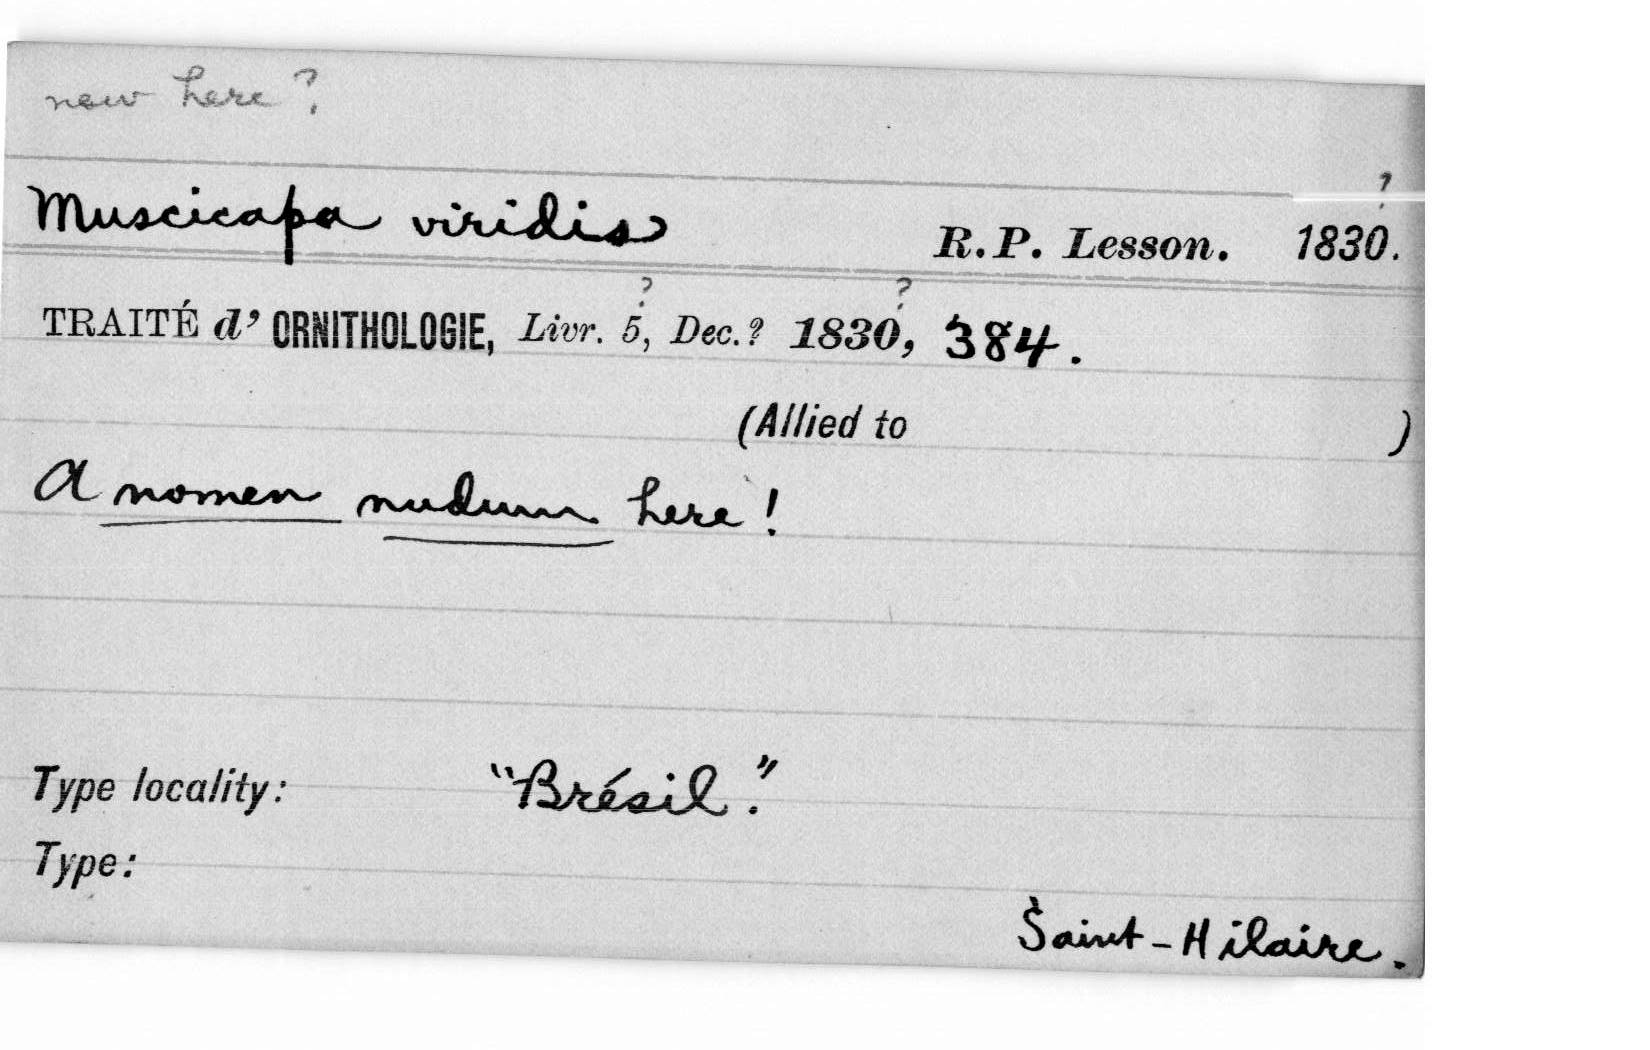 new here?
?
Muscicapa viridis R.P. Lesson. 1830.
? ?
TRAITÉ d' ORNITHOLOGIE, Livr. 5, Dec.? 1830, 384.
(Allied to )
A nomen nudum here!
Type locality: "Brésil."
Type:
Saint-Hilaire.